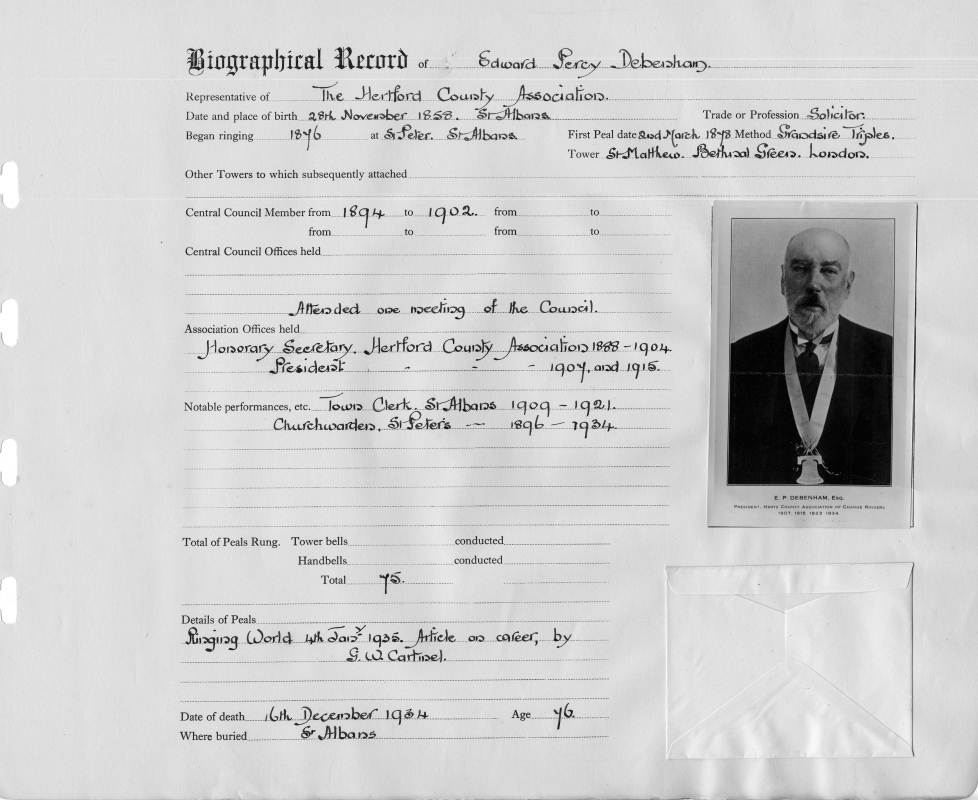 Biographical Record of Edward Percy Debenham.
Representative of The Hertford County Association.
Date and place of birth 28th November 1858. St Albans Trade or Profession Solicitor.
Began ringing 1876 at St Peter. St Albans First Peal date 2nd March 1878 Method Grandsire Triples.
Tower St Matthew. Bethnal Green. London.
Other Towers to which subsequently attached
Central Council Member from 1894 to 1902. from to
from to from to
Central Council Offices held
Attended one meeting of the Council.
Association Offices held
Honorary Secretary. Hertford County Association 1888 - 1904.
President " - - - 1907, and 1915.
Notable performances, etc. Town Clerk. St Albans 1909 - 1921.
Churchwarden. St Peter's — 1896 - 1934.
E. P. DEBENHAM, Esq.
President, Herts County Association of Change Ringers
1907, 1915, 1923, 1934.
Total of Peals Rung. Tower bells conducted
Handbells conducted
Total 75.
Details of Peals
Ringing World 4th Jany 1935. Article on career, by
G. W. Cartmel.
Date of death 16th December 1934 Age 76.
Where buried St Albans